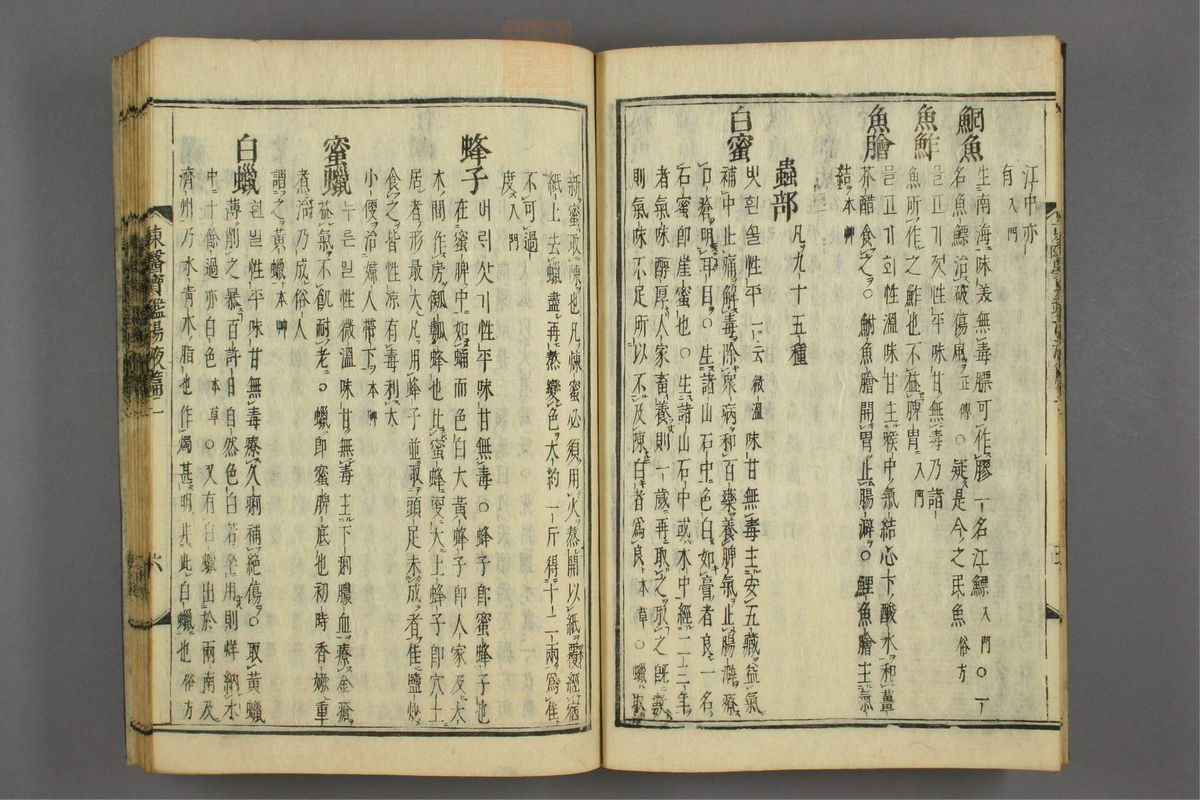 江中亦
有入門
鮰魚
生南海味美無毒膘可作膠一名江鰾入門○一
名魚鰾治破傷風正傳○疑是今之民魚俗方
魚鮓
魚所作之鮓也不益脾胃入門
魚膾
性溫味甘主喉中氣結心下酸水和薑
芥醋食之○鮒魚膾開胃止腸澼○鯉魚膾主氣
結本草
蟲部 凡九十五種
白蜜
性平一云微溫味甘無毒主安五藏益氣
補中止痛解毒除衆病和百藥養脾氣止腸澼療
口瘡明耳目○生諸山石中色白如膏者良一名
石蜜卽崖蜜也○生諸山石中或木中經二三年
者氣味醇厚人家畜養則一歲再取之取之旣數
則氣味不足所以不及陳白者爲良本草○蠟取
新蜜取陳也凡煉蜜必須用火熬開以紙覆經宿
紙上去蠟盡再熬變色大約一斤得十二兩爲佳
不可過
度入門
蜂子
性平味甘無毒○蜂子卽蜜蜂子也
在蜜脾中如蛹而色白大黃蜂子卽人家及大
木間作房瓠𤬛蜂也比蜜蜂更大土蜂子卽穴土
居者形最大凡用蜂子並取頭足未成者佳鹽炒
食之皆性涼有毒利大
小便治婦人帶下本草
蜜蠟
누른밀性微溫味甘無毒主下痢膿血療金瘡
益氣不飢耐老○蠟卽蜜脾底也初時香嫩重
煮治乃成俗人
謂之黃蠟本草
白蠟
흰밀性平味甘無毒療久痢補絶傷○取黃蠟
薄削之暴百許日自然色白若卒用則烊納水
中十餘過亦白色本草○又有白蠟出於兩南及
濟州乃水青木脂也作燭甚明共此白蠟也俗方
東醫寶鑑湯液篇二
六